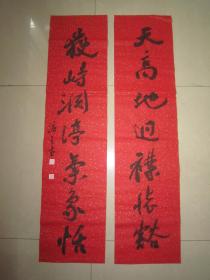 天高地迥襟怀豁
岳峙渊渟气象恬